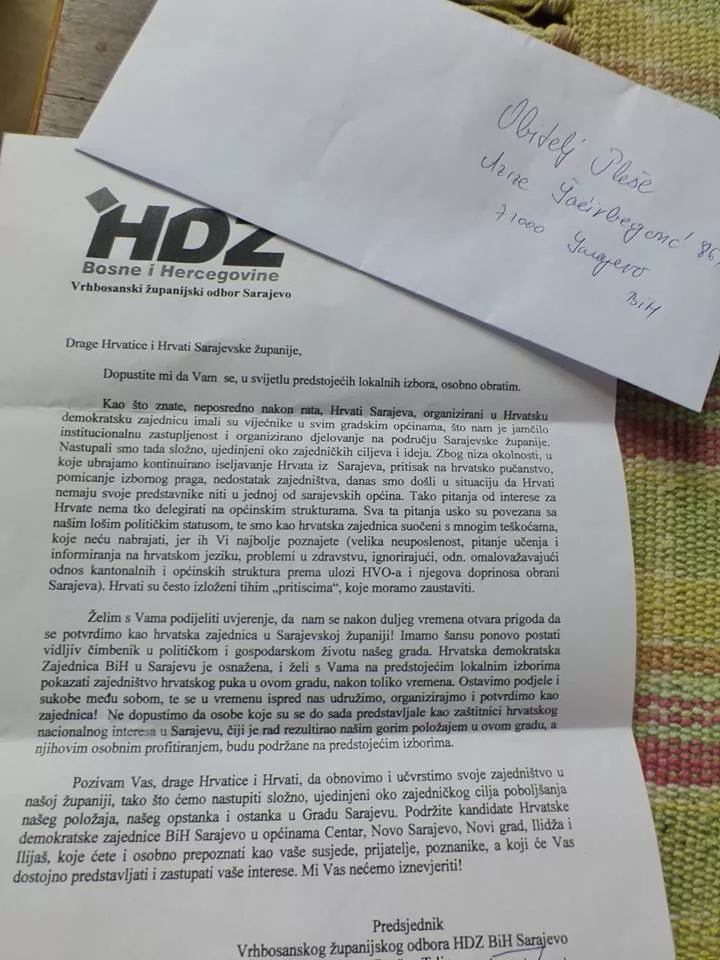 Obitelj Pleše
Azize Šaćirbegović 86,
71000 Sarajevo
BiH
HDZ
Bosne i Hercegovine
Vrhbosanski županijski odbor Sarajevo
Drage Hrvatice i Hrvati Sarajevske županije,
Dopustite mi da Vam se, u svijetlu predstojećih lokalnih izbora, osobno obratim.
Kao što znate, neposredno nakon rata, Hrvati Sarajeva, organizirani u Hrvatsku
demokratsku zajednicu imali su vijećnike u svim gradskim općinama, što nam je jamčilo
institucionalnu zastupljenost i organizirano djelovanje na području Sarajevske županije.
Nastupali smo tada složno, ujedinjeni oko zajedničkih ciljeva i ideja. Zbog niza okolnosti, u
koje ubrajamo kontinuirano iseljavanje Hrvata iz Sarajeva, pritisak na hrvatsko pučanstvo,
pomicanje izbornog praga, nedostatak zajedništva, danas smo došli u situaciju da Hrvati
nemaju svoje predstavnike niti u jednoj od sarajevskih općina. Tako pitanja od interese za
Hrvate nema tko delegirati na općinskim strukturama. Sva ta pitanja usko su povezana sa
našim lošim političkim statusom, te smo kao hrvatska zajednica suočeni s mnogim teškoćama,
koje neću nabrajati, jer ih Vi najbolje poznajete (velika neuposlenost, pitanje učenja i
informiranja na hrvatskom jeziku, problemi u zdravstvu, ignorirajući, odn. omalovažavajući
odnos kantonalnih i općinskih struktura prema ulozi HVO-a i njegova doprinosa obrani
Sarajeva). Hrvati su često izloženi tihim „pritiscima“, koje moramo zaustaviti.
Želim s Vama podijeliti uvjerenje, da nam se nakon duljeg vremena otvara prigoda da
se potvrdimo kao hrvatska zajednica u Sarajevskoj županiji! Imamo šansu ponovo postati
vidljiv čimbenik u političkom i gospodarskom životu našeg grada. Hrvatska demokratska
Zajednica BiH u Sarajevu je osnažena, i želi s Vama na predstojećim lokalnim izborima
pokazati zajedništvo hrvatskog puka u ovom gradu, nakon toliko vremena. Ostavimo podjele i
sukobe među sobom, te se u vremenu ispred nas udružimo, organizirajmo i potvrdimo kao
zajednica! Ne dopustimo da osobe koje su se do sada predstavljale kao zaštitnici hrvatskog
nacionalnog interesa u Sarajevu, čiji je rad rezultirao našim gorim položajem u ovom gradu, a
njihovim osobnim profitiranjem, budu podržane na predstojećim izborima.
Pozivam Vas, drage Hrvatice i Hrvati, da obnovimo i učvrstimo svoje zajedništvo u
našoj županiji, tako što ćemo nastupiti složno, ujedinjeni oko zajedničkog cilja poboljšanja
našeg položaja, našeg opstanka i ostanka u Gradu Sarajevu. Podržite kandidate Hrvatske
demokratske zajednice BiH Sarajevo u općinama Centar, Novo Sarajevo, Novi grad, Ilidža i
Ilijaš, koje ćete i osobno prepoznati kao vaše susjede, prijatelje, poznanike, a koji će Vas
dostojno predstavljati i zastupati vaše interese. Mi Vas nećemo iznevjeriti!
Predsjednik
Vrhbosanskog županijskog odbora HDZ BiH Sarajevo